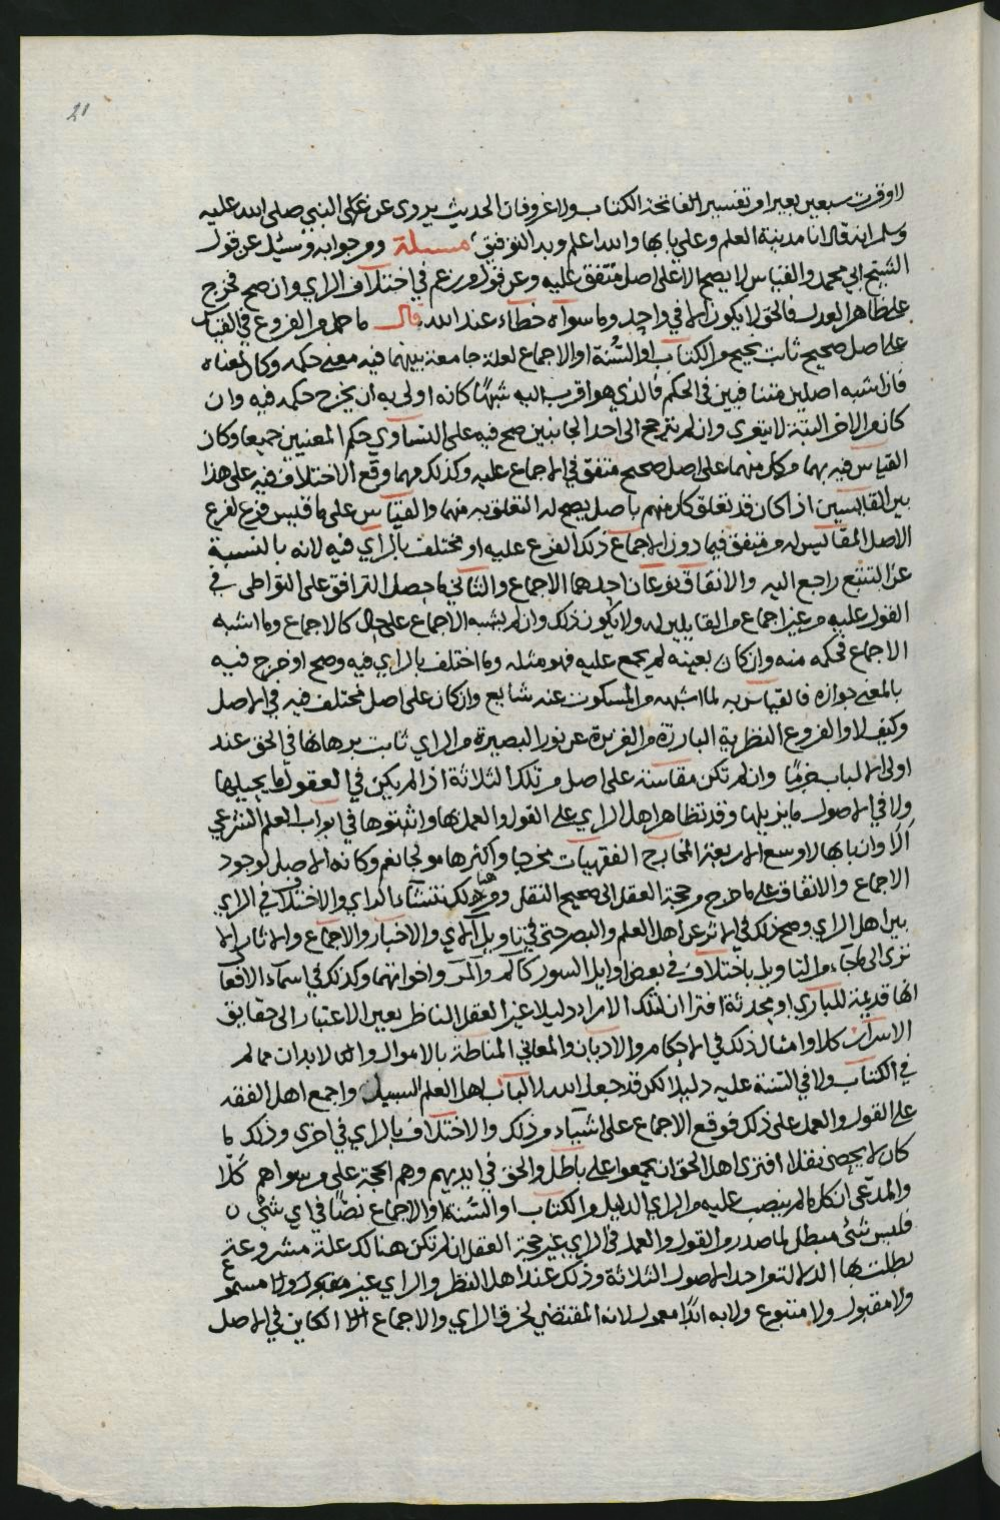 21
لاوقرت سبعين بعيرا من تفسير الفاتحة الكتاب ولا غرو فان الحديث يروى عن النبي صلى الله عليه
وسلم انه قال انا مدينة العلم وعلي بابها والله اعلم وبه التوفيق مسئلة ومن جوابه وسئل عن قول
الشيخ ابي محمد والقياس لا يصح الا على اصل متفق عليه وعن قول من زعم في اختلاف الراي وان صح فخرج
على ظاهر العدل فالحق لا يكون الا في واحد وما سواه خطاء عند الله قال ما حمل من الفروع في القياس
على اصل صحيح ثابت صحيح من الكتاب او السنة او الاجماع لعلة جامعة بينهما فيه معنى حكمه وكان لمعناه
فان اشبه اصلين متنافيين في الحكم فالذي هو اقرب اليه شبها كانه اولى به ان يخرج حكمه فيه وان
كان من الاخر البتة لا يتعرى وان لم يترجح الى احد الجانبين صح فيه على التساوي حكم المعنيين جميعا وكان
القياس فيه بهما وكل منهما على اصل صحيح متفق في الاجماع عليه وكذلك مهما وقع الاختلاف فيه على هذا
بين القايسين اذا كان قد تعلق كل منهم باصل يصح له التعلق به منهما والقياس على ما قيس فرع لفرع
الاصل المقاليس له من متفق فيما دون الاجماع ذلك الفرع عليه او مختلف بالراي فيه لانه بالنسبة
عن التتبع راجع اليه والاتفاق نوعان احدهما الاجماع والثاني ما حصل الترافق على التواطى في
القول عليه من غير اجماع من القايلين له ولا يكون ذلك وان لم يشبه الاجماع على حال كالاجماع وما اشبه
الاجماع فحكمه منه وان كان بعينه لم يجمع عليه فهو مثله وما اختلف بالراي فيه وصح او خرج فيه
بالمعنى جوازه فالقياس به لما اشبهه من المسكوت عنه شايع وان كان على اصل مختلف فيه في الاصل
وكيف لا والفروع النظرية البارزة من الغريزة عن نور البصيرة من الراي ثابت برهانها في الحق عند
اولى الالباب وان لم تكن مقاسة على اصل من تلك الثلاثة اذا لم يكن في العقول ما يحيلها
ولا في الاصول ما يزيلها وقد تظاهر اهل الراي على القول والعمل بها واثبتوها في ابواب العلم الشرعي
الا وان بابها لاوسع الاربعة المخارج الفقهيات مخرجا واكثرها مولجا نعم وكانه الاصل لوجود
الاجماع والاتفاق على ما خرج من حجة العقل الى صحيح النقل ومن هنالك نتشاء الراي والاختلاف في الراي
بين اهل الراي وصح ذلك في الاثر عن اهل العلم والبصر حتى في تاويل الآي والاخبار والاجماع والاثار الا
ترى الى ما جاء من التاويل باختلاف في بعض اوايل السور كآلم وآلمر واخواتهما وكذلك في اسماء الافعا
انها قديمة للباري او محدثة افترا ان لتلك الامراد دليلا غير العقل الناظر بعين الاعتبار الى حقايق
الاسرار كلا وامثال ذلك في الاحكام والاديان والمعاني المناطة بالاموال والابدان مما لم
في الكتاب ولا في السنة عليه دليلا لكن قد جعل الله لالباب اهل العلم السبيل واجمع اهل الفقه
على القول والعمل على ذلك فوقع الاجماع على اشياء من ذلك والاختلاف بالراي في اخرى وذلك ما
كان لا يحصى نقلا افترى اهل الحق ان يجمعوا على باطل والحق في ايديهم وهم الحجة على من سواهم كلا
والمدعى انكاره لم ينصب عليه من الراي الدليل من الكتاب او السنة او الاجماع نصا في اي شئ ن
فليس شئ مبطل لما صدر من القول والعمل في الراي غير حجة العقل ان لم تكن هنالك علة مشروعة
بطلت بها الدلالة من احد الاصول الثلاثة وذلك عند اهل النظر والراي غير مقبول ولا مسموع
ولا مقبول ولا متبوع ولا به ابدا معمول لانه المقتضي لخرق الراي والاجماع الكاين في الاصل